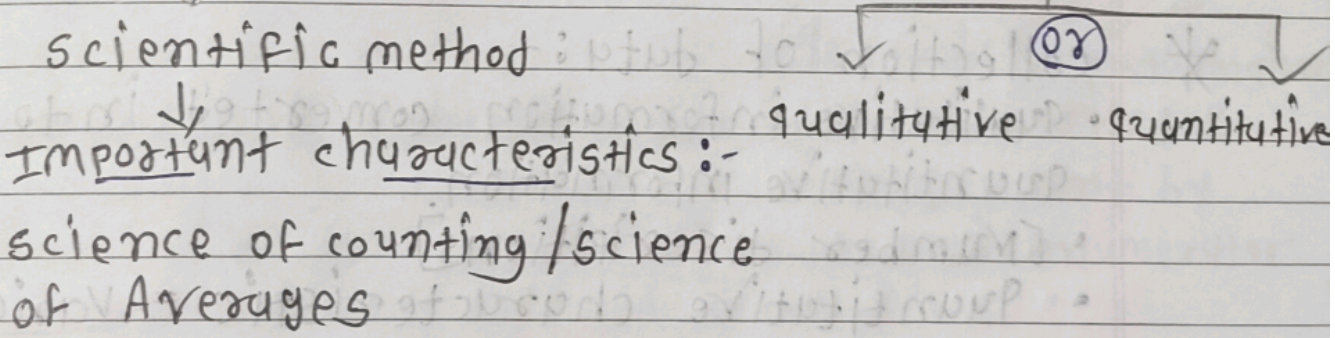 scientific method
or
qualitative quantitative
Important characteristics :-
science of counting / science
of Averages